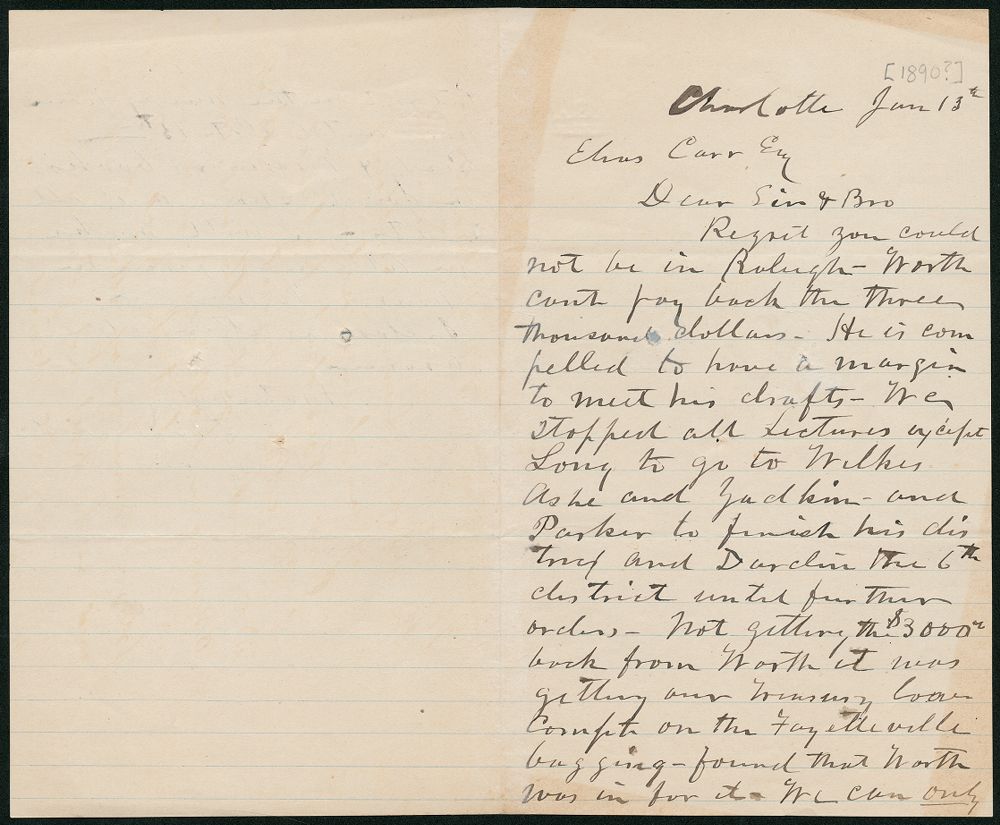 [1890?]
Charlotte Jan 13th
Elias Carr Esq
Dear Sir & Bro
Regret you could
not be in Raleigh - Worth
cant pay back the three
thousand dollars - He is com
pelled to have a margin
to meet his drafts - We
stopped all Lectures except
Long to go to Wilkes
Ashe and Yadkin - and
Parker to finish his dis
trict and Darden the 6th
district until further
orders - Not getting the $3000
back from Worth it was
getting our Treasury low
on the Fayetteville
bagging - found that Worth
was in for it - We can only